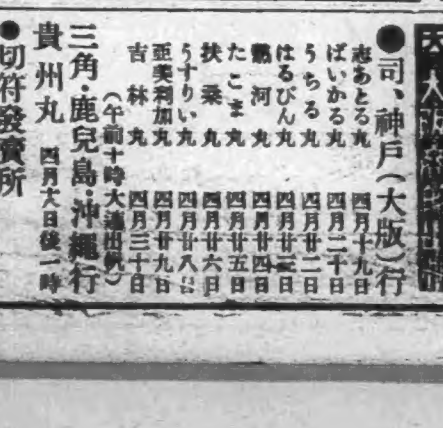 ●司、神戸(大阪)行
志あとる丸 四月十九日
ばいかる丸 四月二十日
うちる丸 四月廿二日
はるびん丸 四月廿三日
熱河丸 四月廿四日
たこま丸 四月廿五日
扶桑丸 四月廿六日
うすりい丸 四月廿八日
亜美利加丸 四月廿九日
吉林丸 四月三十日
(午前十時大連出帆)
三角・鹿兒島・沖縄行
貴州丸 四月廿六日後一時
●切符發賣所